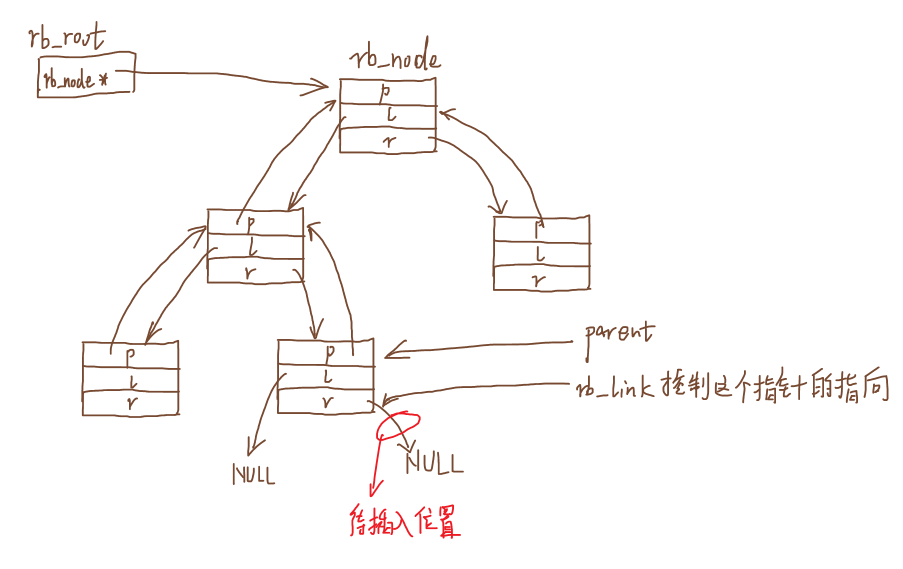 rb_root
rb_node *
rb_node
p
l
r
p
l
r
p
l
r
p
l
r
p
l
r
parent
rb_link 控制这个指针的指向
NULL
NULL
待插入位置